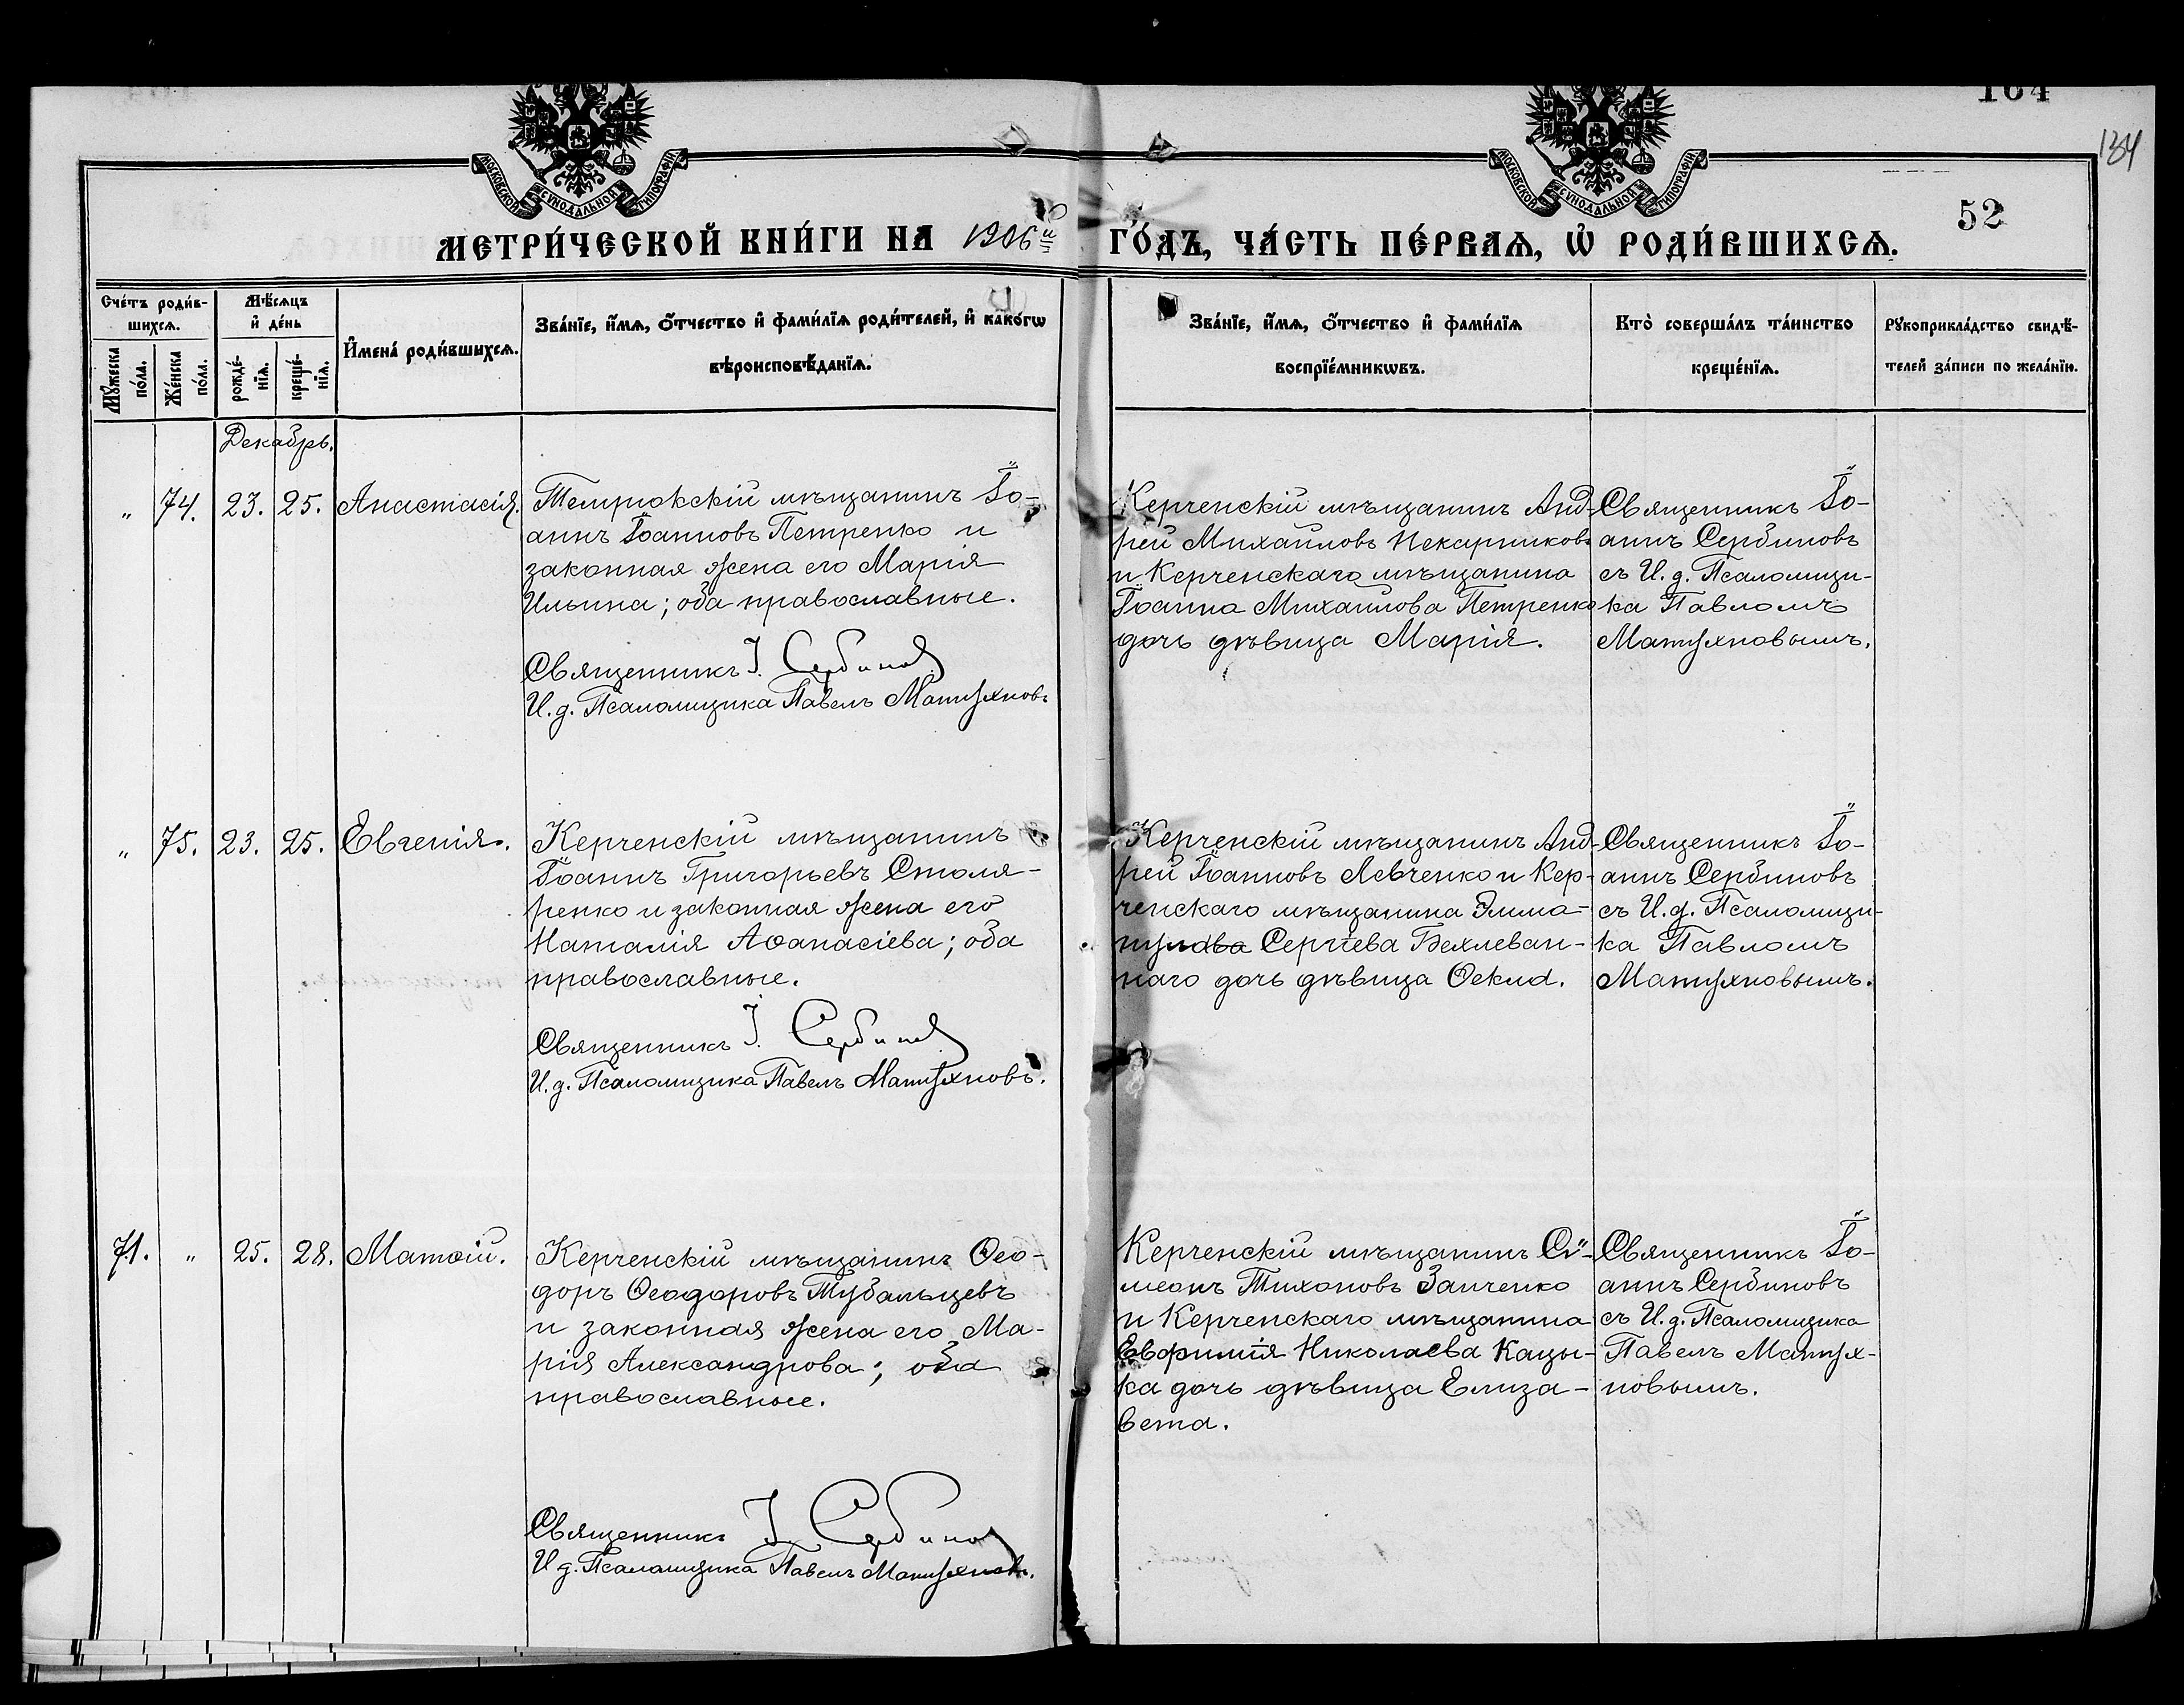 164
134
МОСКОВСКОЙ СУНОДАЛЬНОЙ ТИПОГРАФІИ
МОСКОВСКОЙ СУНОДАЛЬНОЙ ТИПОГРАФІИ
52
МЕТРИ́ЧЕСКОЙ КНИ́ГИ НА 1906й ГО́ДЪ, ЧА́СТЬ ПЕ́РВАѦ, Ѡ҆ РОДИ́ВШИХСѦ.
Сче́тъ роди́в-
шихсѧ.
Мꙋ́жеска по́ла.
Же́нска по́ла.
Мѣ́сѧцъ
и҆ де́нь
рожде́-
нїѧ.
креще́-
нїѧ.
И҆мена́ роди́вшихсѧ.
Зва́нїе, и҆́мѧ, ѻ҆́тчество и҆ фами́лїѧ роди́телей, и҆ како́гѡ
вѣроисповѣ́данїѧ.
Зва́нїе, и҆́мѧ, ѻ҆́тчество и҆ фами́лїѧ
воспрїе́мникѡвъ.
Кто̀ соверша́лъ та́инство
креще́нїѧ.
Рꙋкоприкла́дство свидѣ́-
телей за́писи по жела́нїю.
Декабрь.
„ 74. 23. 25. Анастасія.
Темрюкскій мѣщанинъ Іо-
аннъ Іоанновъ Петренко и
законная жена его Марія
Ильина; оба православные.
Священникъ І. Сербиновъ
И. д. Псаломщика Павелъ Матужновъ
Керченскій мѣщанинъ Анд-
рей Михайловъ Некарпиковъ
и Керченскаго мѣщанина
Іоанна Михаилова Петренко
дочь дѣвица Марія.
Священникъ Іо-
аннъ Сербиновъ
съ И. д. Псаломщи-
ка Павломъ
Матужновымъ.
„ 75. 23. 25. Евгенія.
Керченскій мѣщанинъ
Іоаннъ Григорьевъ Столя-
ренко и законная жена его
Наталія Аѳанасіева; оба
православные.
Священникъ І. Сербиновъ
И. д. Псаломщика Павелъ Матужновъ.
Керченскій мѣщанинъ Анд-
рей Іоанновъ Левченко и Кер-
ченскаго мѣщанина Эмма-
Сергіева Бехлеван-
наго дочь дѣвица Ѳекла.
Священникъ Іо-
аннъ Сербиновъ
съ И. д. Псаломщи-
ка Павломъ
Матужновымъ.
71. „ 25. 28. Матѳій.
Керченскій мѣщанинъ Ѳео-
доръ Ѳеодоровъ Тубальцевъ
и законная жена его Ма-
рія Александрова; оба
православные.
Священникъ І. Сербиновъ
И д. Псаломщика Павелъ Матужновъ.
Керченскій мѣщанинъ Сѵ-
меонъ Тихоновъ Заиченко
и Керченскаго мѣщанина
Евфимія Николаева Кацы-
ка дочь дѣвица Елиза-
вета.
Священникъ Іо-
аннъ Сербиновъ
съ И. д. Псаломщика
Павелъ Матуж-
новымъ.